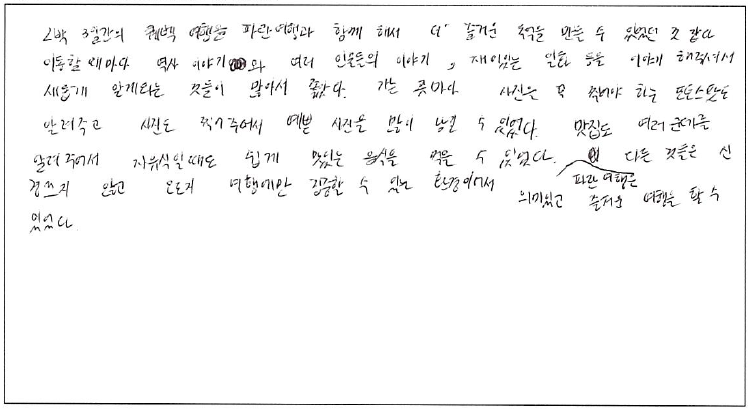 2박 3일간의 퀘벡 여행을 파란여행과 함께 해서 더 즐거운 추억을 만들 수 있었던 것 같다
이동할 때마다 역사 이야기와 여러 인물들의 이야기, 재밌있는 일화 등을 이야기 해주셔서
새롭게 알게되는 것들이 많아서 좋았다. 가는 곳마다 사진은 꼭 찍어야 하는 포토스팟도
알려주고 사진도 찍어주어서 예쁜 사진을 많이 남길 수 있었다. 맛집도 여러 군데를
알려주어서 자유식일때도 쉽게 맛있는 음식을 먹을 수 있었다. 다른 것들은 신
경쓰지 않고 오로지 여행에만 집중할 수 있는 환경이어서 파란여행은 의미있고 즐거운 여행을 할 수
있었다.